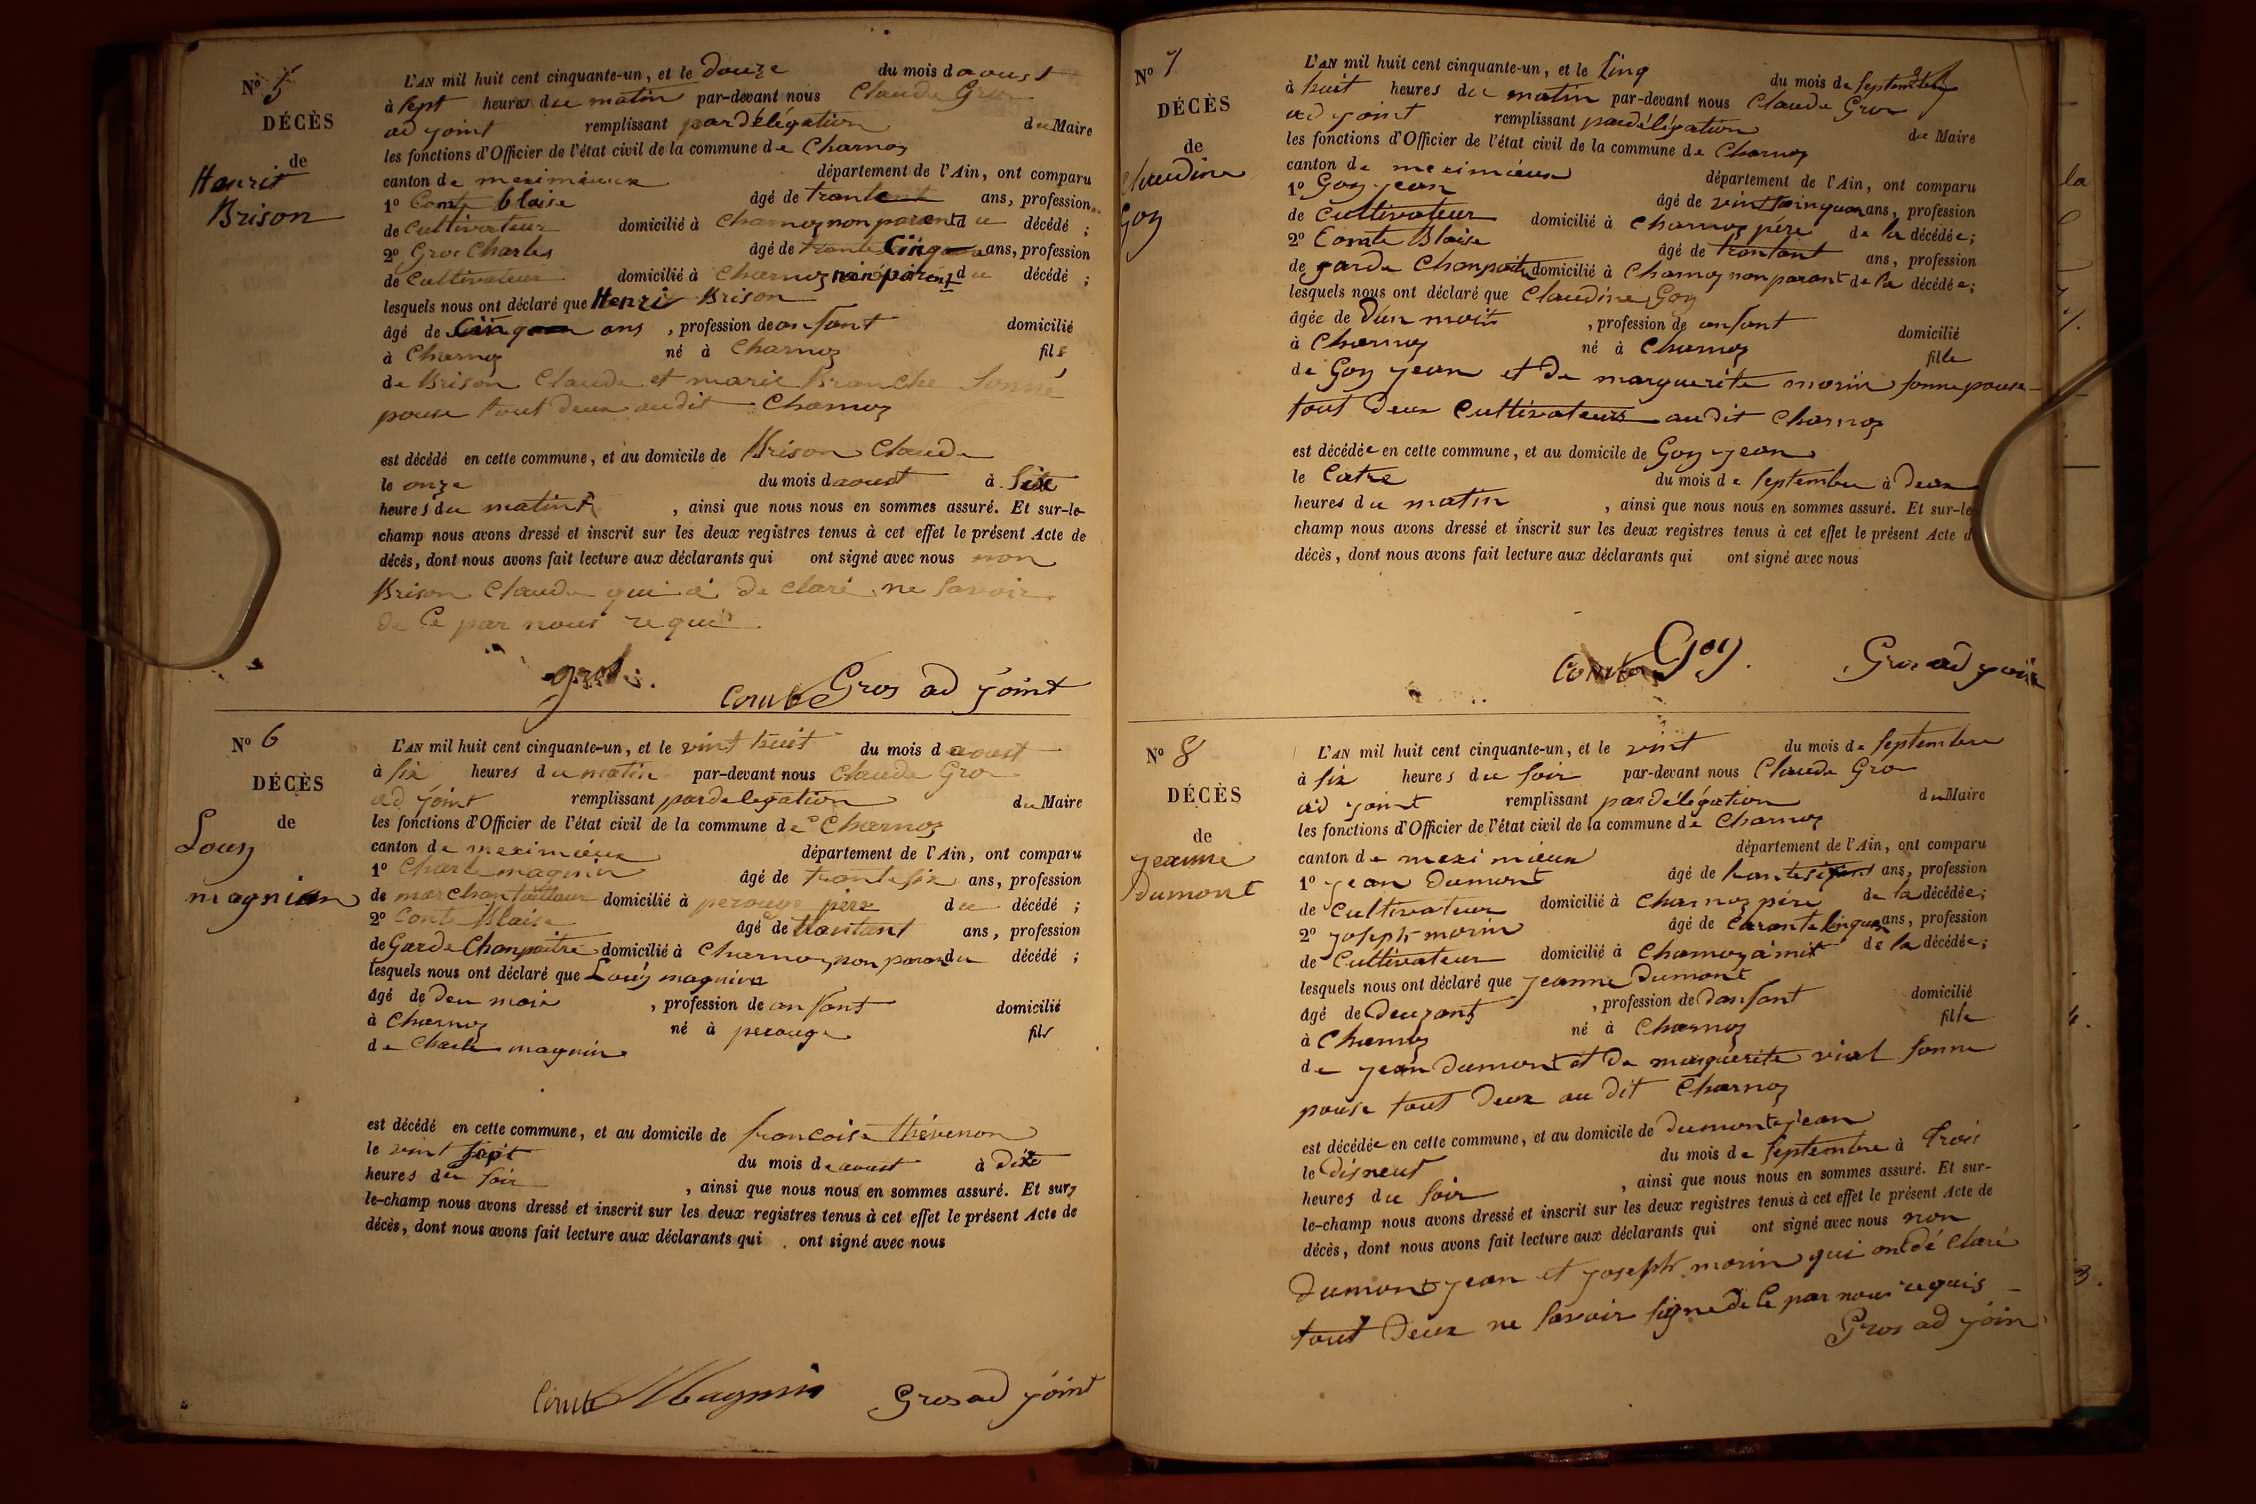 Nº 5
DÉCÈS
de
Henrit
Brison
L'AN mil huit cent cinquante-un, et le douze du mois d aoust
à sept heures du matin par-devant nous Claude Gros
ad joint remplissant par délégation du Maire
les fonctions d'Officier de l'état civil de la commune de Charnoz
canton de meximieux département de l'Ain, ont comparu
1º Comte blaise âgé de trante ans, profession
de Cultivateur domicilié à Charnoz non parent du décédé ;
2º Gros Charles âgé de trante Cinq ans, profession
de Cultivateur domicilié à Charnoz non parent du décédé ;
lesquels nous ont déclaré que Henri Brison
âgé de Cinq ans , profession de anfant domicilié
à Charnoz né à Charnoz fils
de Brison Claude et marie Branche Sonné
pouse tout deux audit Charnoz
est décédé en cette commune, et au domicile de Brison Claude
le onze du mois d aoust à Six
heures du matint , ainsi que nous nous en sommes assuré. Et sur-le-
champ nous avons dressé et inscrit sur les deux registres tenus à cet effet le présent Acte de
décès, dont nous avons fait lecture aux déclarants qui ont signé avec nous non
Brison Claude qui a de claré ne Savoir
de Ce par nous requi
gros
Comte Gros ad joint
Nº 6
DÉCÈS
de
Louy
magnien
L'AN mil huit cent cinquante-un, et le vint huit du mois d aoust
à six heures du matin par-devant nous Claude Gros
ad joint remplissant par delegation du Maire
les fonctions d'Officier de l'état civil de la commune de Charnoz
canton de meximieux département de l'Ain, ont comparu
1º Charle magnin âgé de trante six ans, profession
de marchant domicilié à perouge père du décédé ;
2º Comte Blaise âgé de ans, profession
de Garde Chanpaitre domicilié à Charnoz non paran du décédé ;
lesquels nous ont déclaré que Louis magnien
âgé de deu mois , profession de anfant domicilié
à Charnoz né à perouge fils
de Charle magnin
est décédé en cette commune, et au domicile de francoise thévenon
le vint sept du mois de aoust à Dix
heures du soir , ainsi que nous nous en sommes assuré. Et sur-
le-champ nous avons dressé et inscrit sur les deux registres tenus à cet effet le présent Acte de
décès, dont nous avons fait lecture aux déclarants qui ont signé avec nous
Comte Magnin Gros ad joint
Nº 7
DÉCÈS
de
Claudine
Goy
L'AN mil huit cent cinquante-un, et le Cinq du mois de Septembre
à huit heures du matin par-devant nous Claude Gros
ad joint remplissant par délégation du Maire
les fonctions d'Officier de l'état civil de la commune de Charnoz
canton de meximieux département de l'Ain, ont comparu
1º Goy jean âgé de ans, profession
de Cultivateur domicilié à Charnoz père de la décédée;
2º Comte Blaise âgé de ans, profession
de garde Chanpaitre domicilié à Charnoz non parant de la décédée;
lesquels nous ont déclaré que Claudine Goy
âgée de D'un mois , profession de anfant domicilié
à Charnoz né à Charnoz fille
de Goy jean et de marguerite morin sonne pouse
tout deux Cultivateurs audit Charnoz
est décédée en cette commune, et au domicile de Goy jean
le Catre du mois de Septembre à Deux
heures du matin , ainsi que nous nous en sommes assuré. Et sur-le
champ nous avons dressé et inscrit sur les deux registres tenus à cet effet le présent Acte d
décès, dont nous avons fait lecture aux déclarants qui ont signé avec nous
Comte Goy. Gros ad join
Nº 8
DÉCÈS
de
jeanne
Dumont
L'AN mil huit cent cinquante-un, et le vint du mois de Septembre
à six heures du soir par-devant nous Claude Gros
ad joint remplissant par délégation du Maire
les fonctions d'Officier de l'état civil de la commune de Charnoz
canton de meximieux département de l'Ain, ont comparu
1º jean Dumont âgé de ans, profession
de Cultivateur domicilié à Charnoz père de la décédée;
2º joseph morin âgé de Carante Cinq ans, profession
de Cultivateur domicilié à Charnoz amit de la décédée;
lesquels nous ont déclaré que jeanne Dumont
âgé de Deuzant , profession de Danfant domicilié
à Charnoz né à Charnoz fille
de jean Dumont et De marguerite vial sonne
pouse tout deux au dit Charnoz
est décédée en cette commune, et au domicile de Dumont jean
le Disneuf du mois de Septembre à Trois
heures du soir , ainsi que nous nous en sommes assuré. Et sur-
le-champ nous avons dressé et inscrit sur les deux registres tenus à cet effet le présent Acte de
décès, dont nous avons fait lecture aux déclarants qui ont signé avec nous non
Dumont jean et joseph morin qui ont dé claré
tout deux ne Savoir signe de Ce par nous requis
Gros ad join